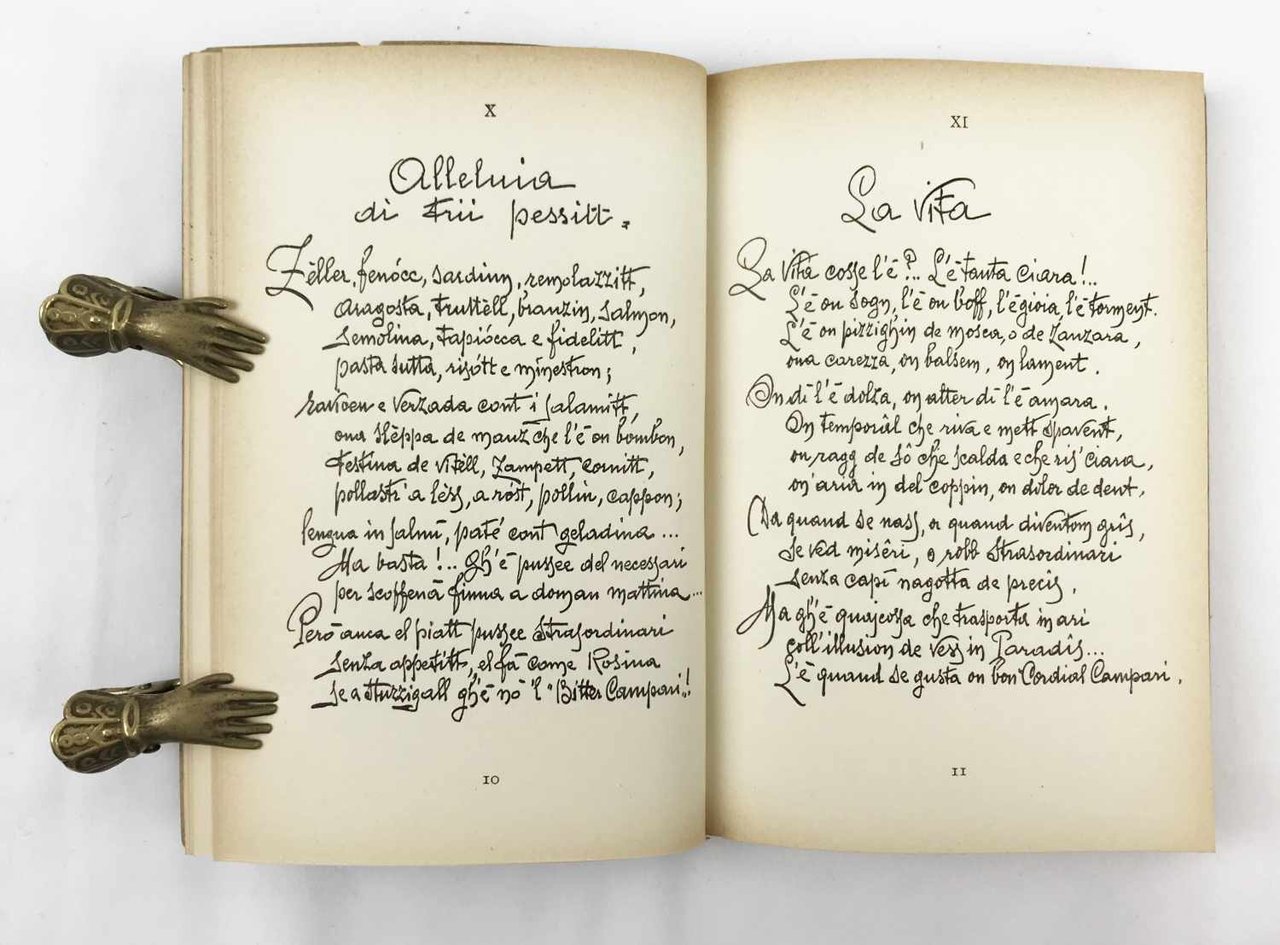 X
Alleluia
di trii pessitt.
Zèller, fenócc, sardinn, remolazzitt,
aragosta, truttèll, branzin, salmon,
semolina, tapiócca e fidelitt,
pasta sutta, risótt e minestron;
ravioeu e verzada cont i salamitt,
ona slèppa de manz che l'é on bómbon,
testina de vitèll, zampett, cornitt,
pollastr' a lèss, a róst, pollin, cappon;
lengua in salmì, paté cont geladina ...
Ma basta!.. Gh'é pussee del necessari
per scoffenà finna a doman mattina...
Però anca el piatt pussee strasordinari
senza appetitt, el fà come Rosina
se a stuzzigall gh'é nò 'l "Bitter Campari"!
10
XI
La vita
La vita cosse l'é?... L'é tanta ciara!...
L'é on sogn, l'é on boff, l'é gioia, l'é torment.
L'é on pizzighin de mosca, o de zanzara,
ona carezza, on balsem, on lament.
On dì l'é dolza, on alter dì l'é amara.
On temporâl che riva e mett spavent,
on ragg de sô che scalda e che ris'ciara,
on' aria in del coppin, on dolor de dent.
Da quand se nass, a quand diventom gris,
se ved misêri, o robb strasordinari
senza capì nagotta de precis.
Ma gh'é quajcossa che trasporta in ari
coll'illusion de vess in Paradis...
L'é quand se gusta on bon Cordial Campari.
11